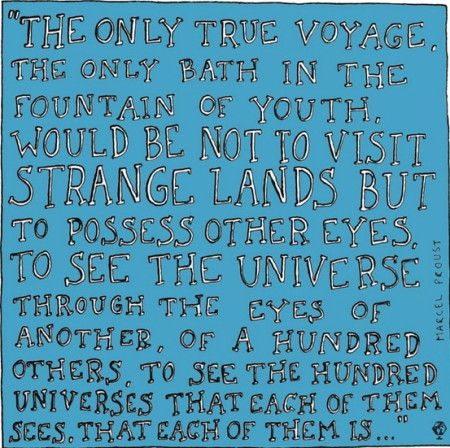 "THE ONLY TRUE VOYAGE,
THE ONLY BATH IN THE
FOUNTAIN OF YOUTH,
WOULD BE NOT TO VISIT
STRANGE LANDS BUT
TO POSSESS OTHER EYES,
TO SEE THE UNIVERSE
THROUGH THE EYES OF
ANOTHER, OF A HUNDRED
OTHERS, TO SEE THE HUNDRED
UNIVERSES THAT EACH OF THEM
SEES, THAT EACH OF THEM IS..."
MARCEL PROUST